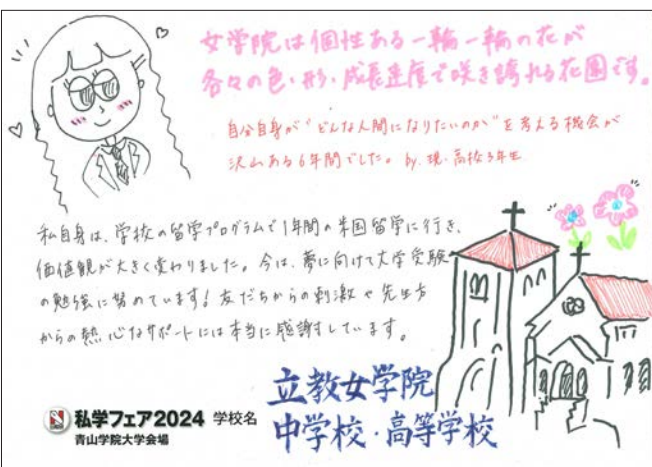 女学院は個性ある一輪一輪の花が
各々の色・形・成長速度で咲き誇れる花園です。
自分自身が“どんな人間になりたいのか”を考える機会が
沢山ある6年間でした。 by. 現・高校3年生
私自身は、学校の留学プログラムで1年間の米国留学に行き、
価値観が大きく変わりました。今は、夢に向けて大学受験
の勉強に努めています！友だちからの刺激や先生方
からの熱心なサポートには本当に感謝しています。
立教女学院
中学校・高等学校
私学フェア2024 学校名
青山学院大学会場